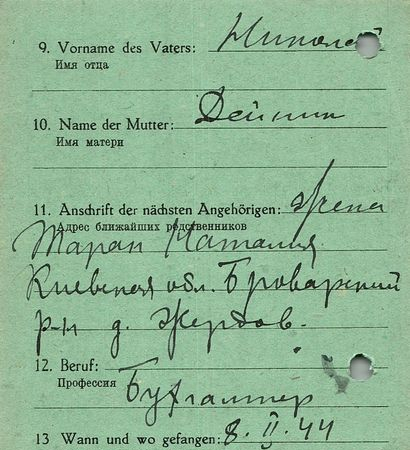 9. Vorname des Vaters: Николай
Имя отца
10. Name der Mutter: Дейнин
Имя матери
11. Anschrift der nächsten Angehörigen: жена
Адрес ближайших родственников
Таран Наталия
Киевская обл. Броварский
р-н д. Жердов.
12. Beruf:
Профессия
Бухгалтер
13 Wann und wo gefangen: 8. II. 44